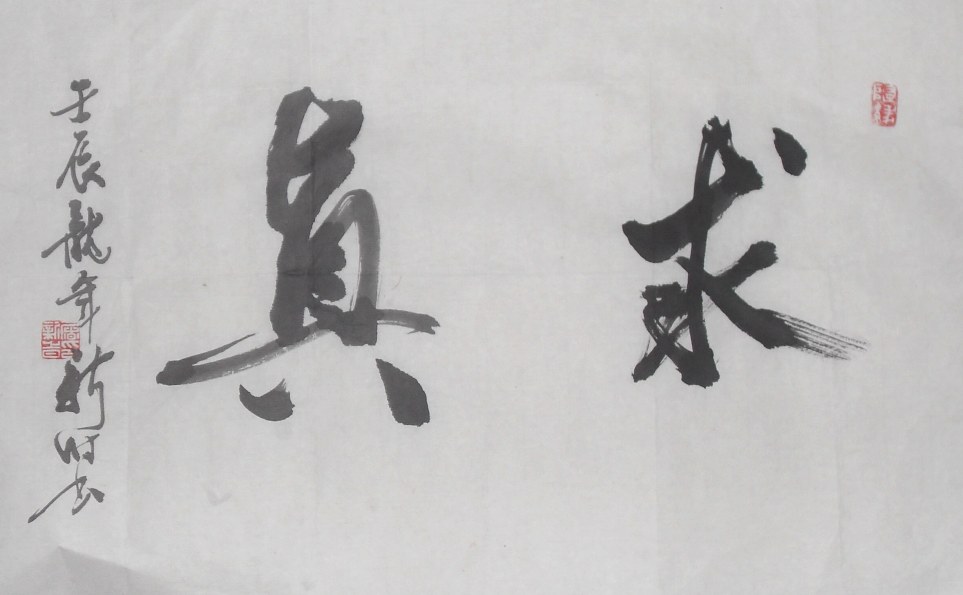 求真
壬辰龍年新時书